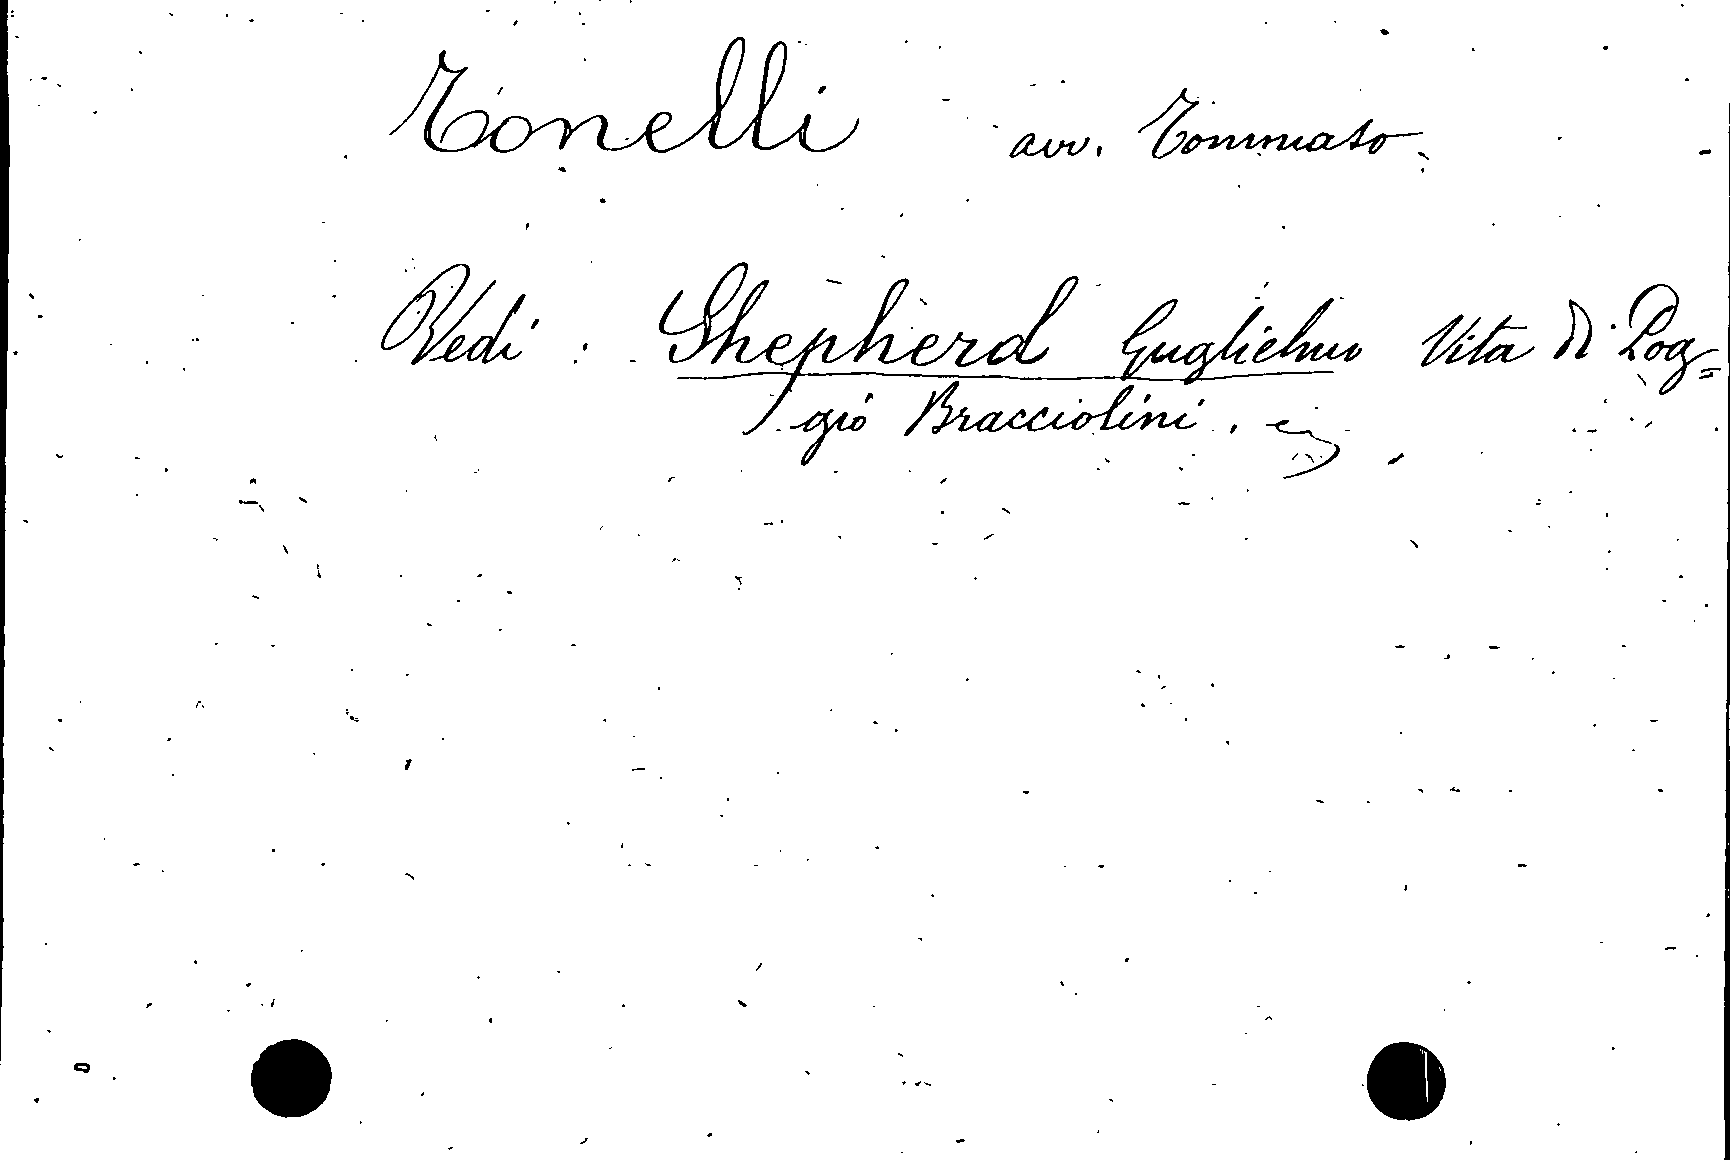 Tonelli avv. Tommaso.
Vedi: Shepherd Guglielmo Vita di Pog=
gio Bracciolini.